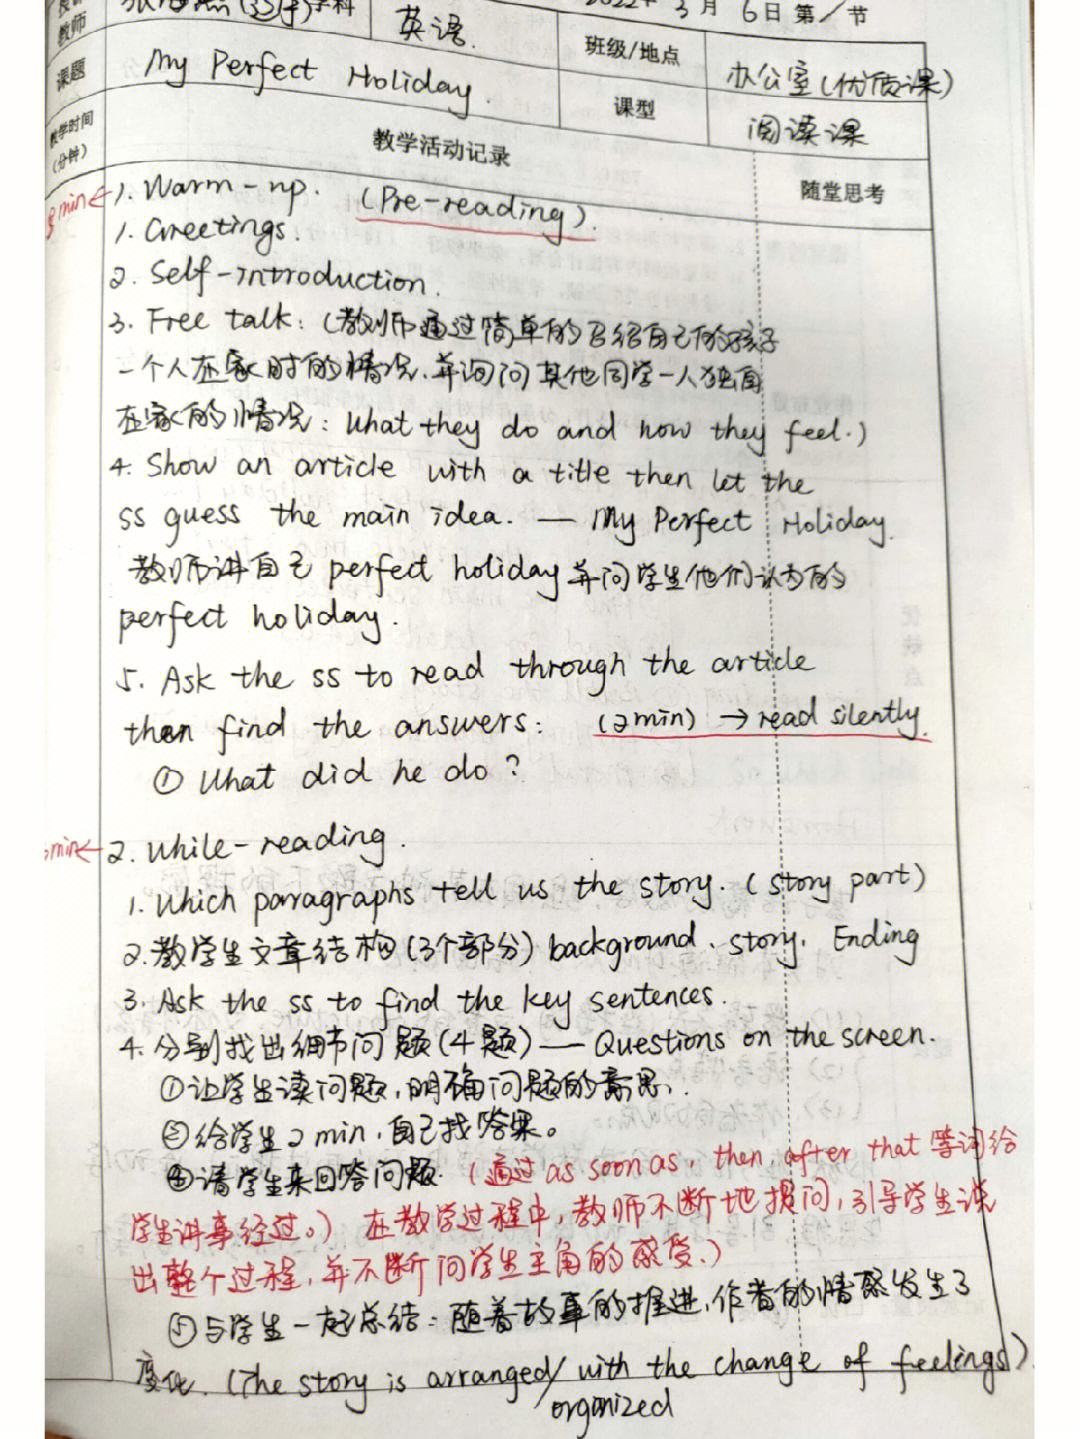 教师
学科
英语
2022年3月6日 第1节
课题
My Perfect Holiday.
班级/地点
办公室(优质课)
课型
阅读课
教学时间
(分钟)
教学活动记录
随堂思考
min← 1. Warm-up. (Pre-reading).
1. Greetings.
2. Self-introduction.
3. Free talk: (教师通过简单的召绍自己的孩子
一个人在家时的情况,并询问其他同学一人独自
在家的情况: What they do and how they feel.)
4. Show an article with a title then let the
ss guess the main idea. — My Perfect Holiday.
教师讲自己 perfect holiday 并问学生他们认为的
perfect holiday.
5. Ask the ss to read through the article
then find the answers: (2min) → read silently.
① What did he do?
min← 2. While-reading.
1. Which paragraphs tell us the story. (story part)
2. 教学生文章结构(3个部分) background、story、Ending
3. Ask the ss to find the key sentences.
4. 分别找出细节问题(4题) — Questions on the screen.
①让学生读问题,明确问题的意思.
③给学生2min,自己找答案。
④请学生来回答问题. (通过as soon as, then, after that等词给
学生讲事经过。) 在教学过程中,教师不断地提问,引导学生说
出整个过程,并不断问学生主角的感受.)
⑤与学生一起总结:随着故事的推进,作者的情感发生了
变化. (The story is arranged/ with the change of feelings).
organized